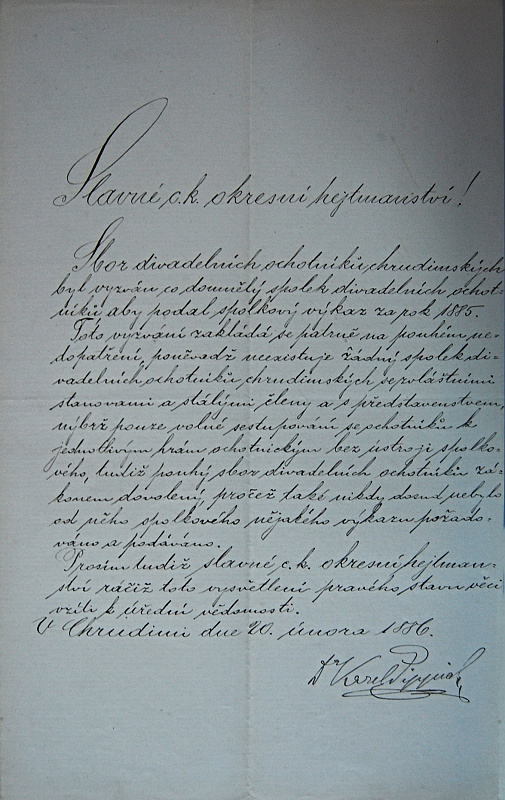 Slavné c.k. okresní hejtmanství!
Sbor divadelních ochotníků chrudimských
byl vyzván co domnělý spolek divadelních ochot-
níků aby podal spolkový výkaz za rok 1885.
Toto vyzvání zakládá se patrně na pouhém ne-
dopatření, poněvadž neexistuje žádný spolek di-
vadelních ochotníků chrudimských se zvláštními
stanovami a stálými členy a s představenstvem,
nýbrž pouze volné sestupování se ochotníků k
jednotlivým hrám ochotnickým bez ústrojí spolko-
vého, tudíž pouhý sbor divadelních ochotníků zá-
konem dovolený, pročež také nikdy dosud nebylo
od něho spolkového nějakého výkazu požado-
váno a podáváno.
Prosím tudíž slavné c.k. okresní hejtman-
ství račiž toto vysvětlení pravého stavu věci
vzíti k úřední vědomosti.
V Chrudimi dne 20. února 1886.
Dr Karel Pippich